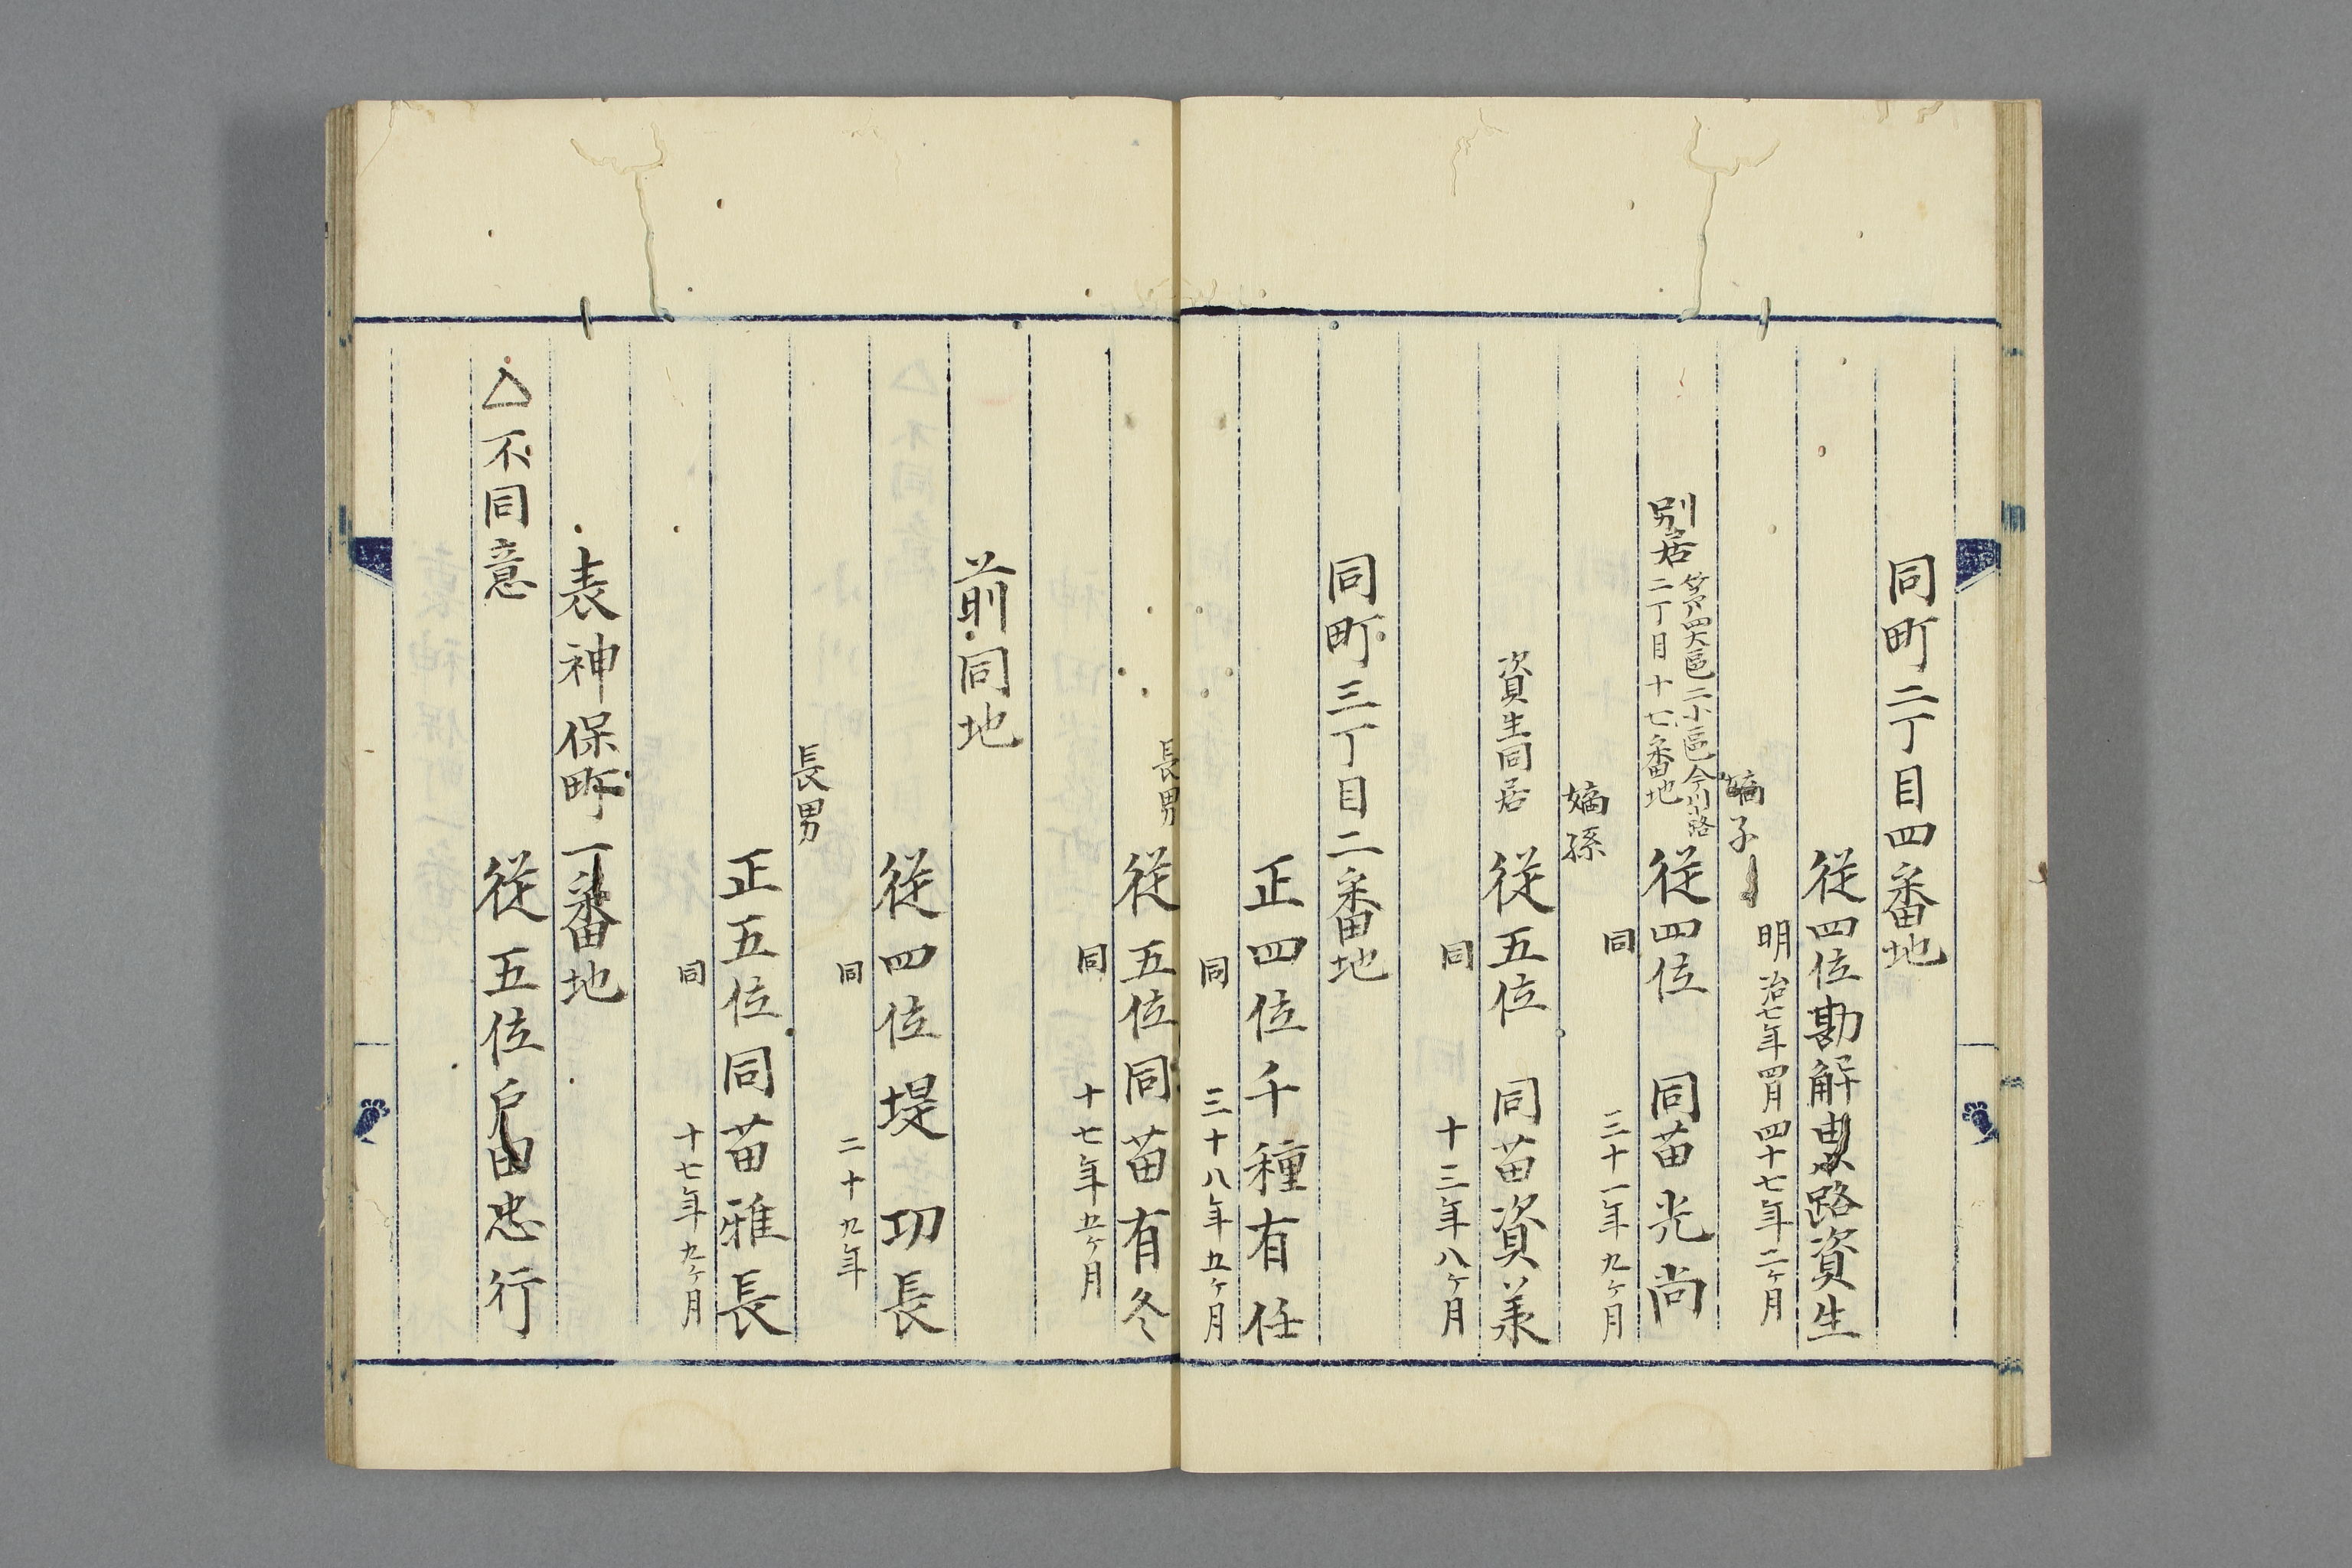 同町二丁目四番地
従四位勘解由小路資生
明治七年四月四十七年二ヶ月
嫡子
別居
第四大區二小區今川小路
二丁目十七番地
従四位 同苗光尚
同 三十一年九ヶ月
嫡孫
資生同居
従五位 同苗資承
同 十三年八ヶ月
同町三丁目二番地
正四位千種有任
同 三十八年五ヶ月
長男
従五位同苗有冬
同 十七年五ヶ月
前同地
従四位堤功長
同 二十九年
長男
正五位同苗雅長
同 十七年九ヶ月
表神保町一番地
△不同意
従五位戸田忠行